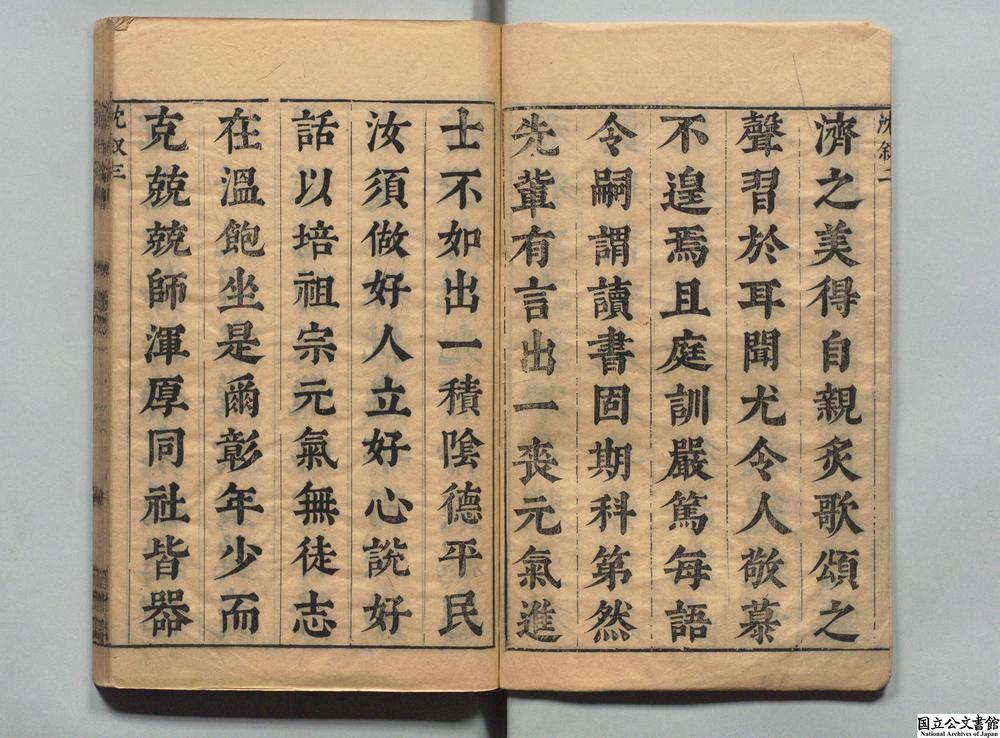 沈叙二
濟之美得自親炙歌頌之
聲習於耳聞尤令人敬慕
不遑焉且庭訓嚴篤每語
令嗣謂讀書固期科第然
先軰有言出一喪元氣進
士不如出一積陰德平民
汝須做好人立好心說好
話以培祖宗元氣無徒志
在溫飽坐是爾彰年少而
克兢兢師渾厚同社皆器
沈叙三
国立公文書館
National Archives of Japan